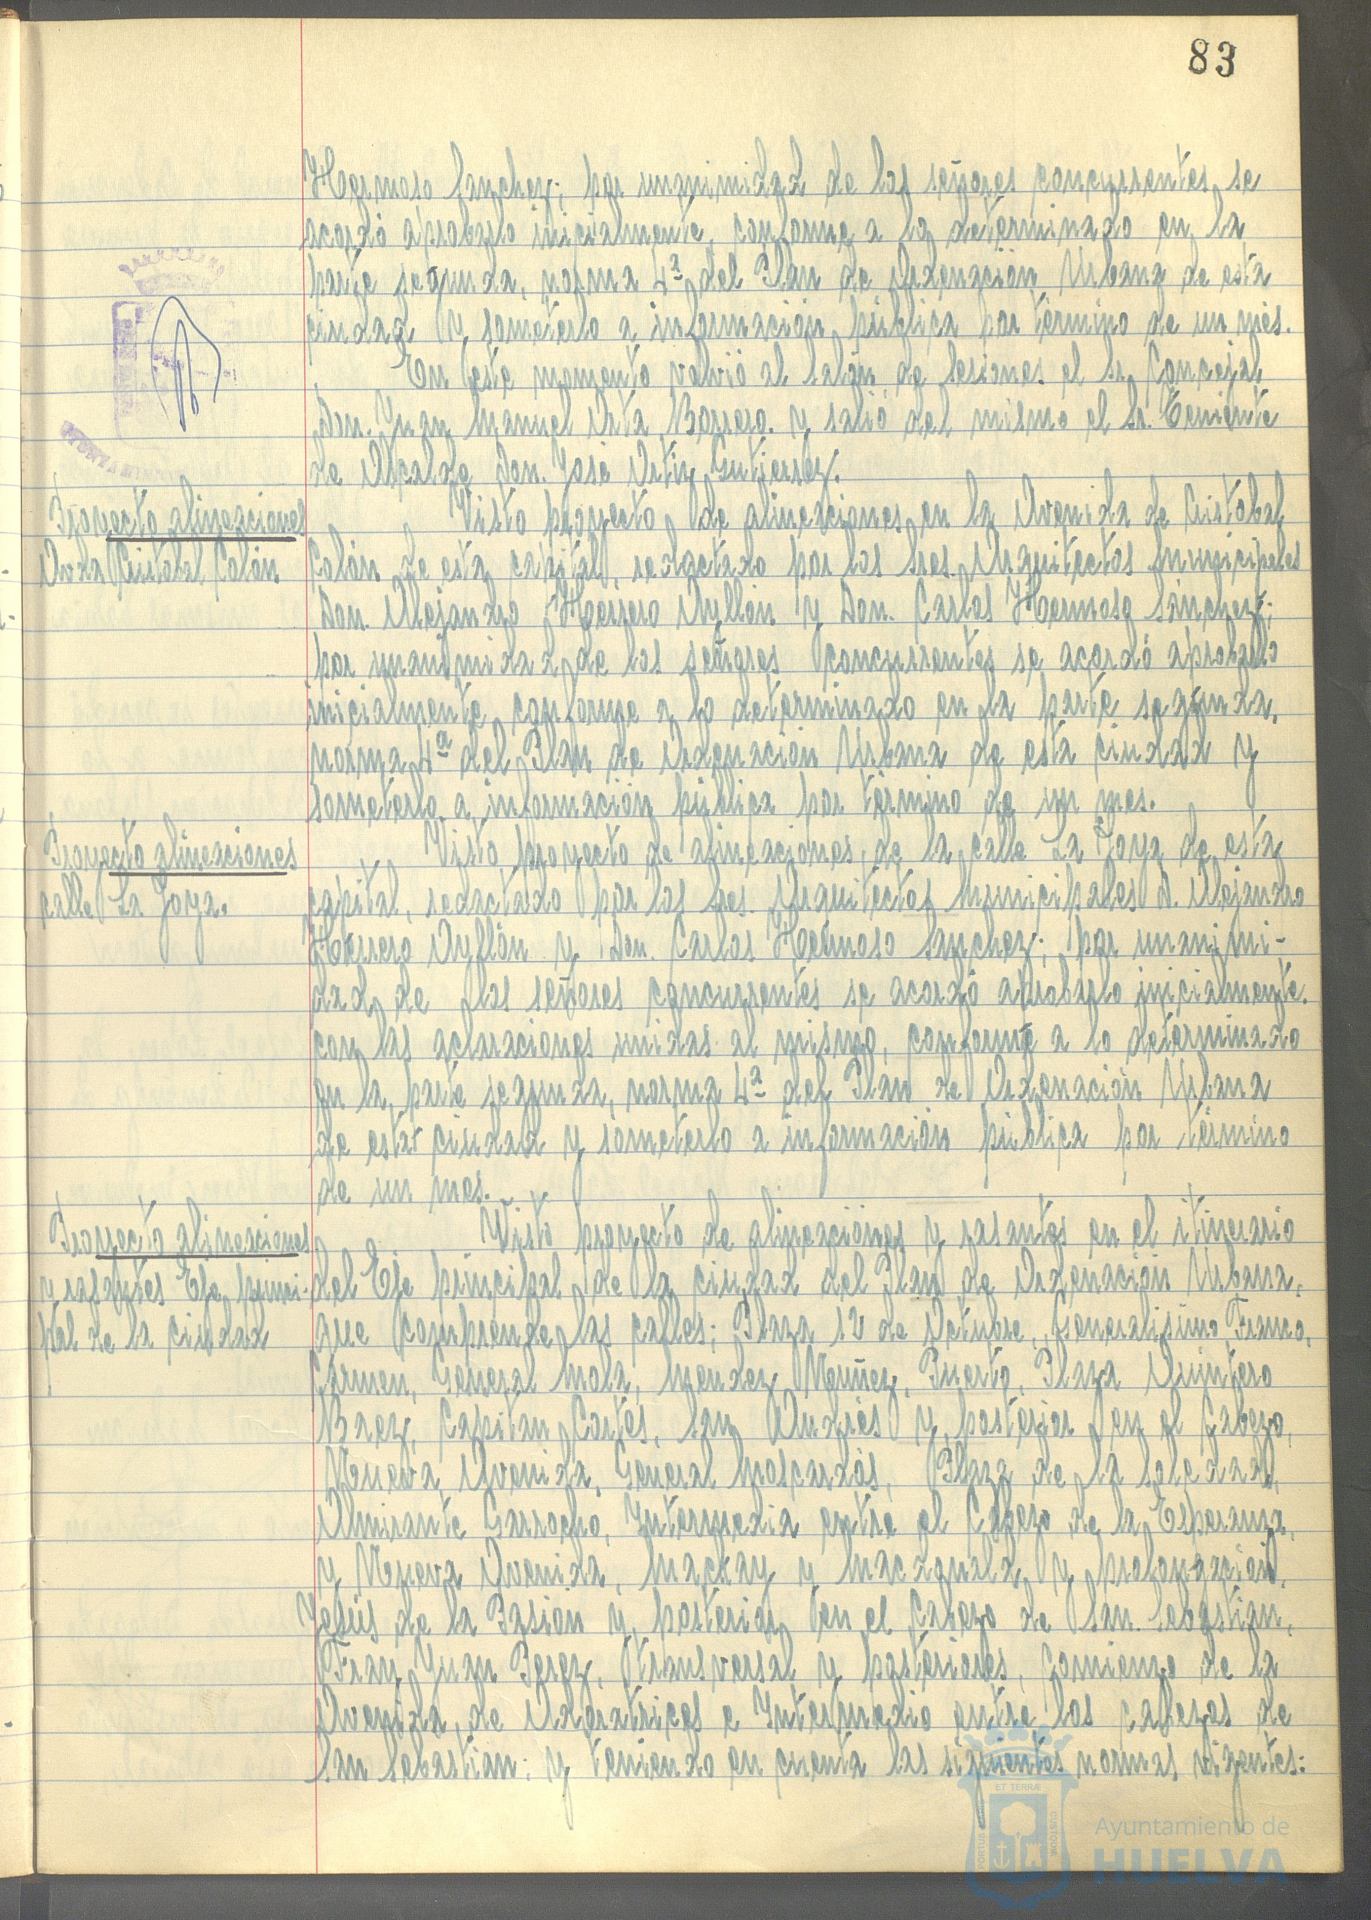 83
Hermoso Sanchez; por unanimidad de los señores concurrentes, se
acordó aprobarlo inicialmente, conforme a lo determinado en la
parte segunda, norma 4ª del Plan de Ordenación Urbana de esta
ciudad y someterlo a información pública por término de un mes.
En este momento volvió al Salón de Sesiones el Sr. Concejal
Don. Juan Manuel Orta Borrero. y salió del mismo el Sr. Teniente
de Alcalde Don. José Ortiz Gutierrez.
Proyecto alineaciones
Avda Cristobal Colón
Visto proyecto de alineaciones en la Avenida de Cristobal
Colón de esta capital, redactado por los Sres. Arquitectos Municipales
Don. Alejandro Herrero Ayllón y Don. Carlos Hermoso Sánchez;
por unanimidad de los señores concurrentes se acordó aprobarlo
inicialmente, conforme a lo determinado en la parte segunda,
norma 4ª del Plan de Ordenación Urbana de esta ciudad y
someterlo a información pública por término de un mes.
Proyecto alineaciones
calle La Joya.
Visto proyecto de alineaciones, de la calle La Joya de esta
capital, redactado por los Sres. Arquitectos Municipales D. Alejandro
Herrero Ayllón y Don. Carlos Hermoso Sanchez; por unanimi-
dad de los señores concurrentes se acordó aprobarlo inicialmente.
con las aclaraciones unidas al mismo, conforme a lo determinado
en la parte segunda, norma 4ª del Plan de Ordenación Urbana
de esta ciudad y someterlo a información pública por término
de un mes.
Proyecto alineaciones
y rasantes Eje princi-
pal de la ciudad
Visto proyecto de alineaciones y rasantes en el itinerario
del Eje principal de la ciudad del Plan de Ordenación Urbana,
que comprende las calles; Plaza 12 de Octubre, Generalísimo Franco,
Carmen, General Mola, Mendez Nuñez, Puerto, Plaza Quintero
Baez, Capitan Cortés, San Andrés y posterior en el Cabezo,
Nueva Avenida, General Moscardós, Plaza de la Soledad,
Almirante Garrocho, Intermedia entre el Cabezo de la Esperanza,
y Nueva Avenida, Mackay y Macdonald y prolongación,
Jesús de la Pasión y posterior en el Cabezo de San Sebastian,
Fray Juan Perez, transversal y posteriores, comienzo de la
Avenida de Adoratrices e Intermedio entre los cabezos de
San Sebastian; y teniendo en cuenta las siguientes normas vigentes:
ET TERRÆ
PORTUS
CUSTODIA
Ayuntamiento de
HUELVA